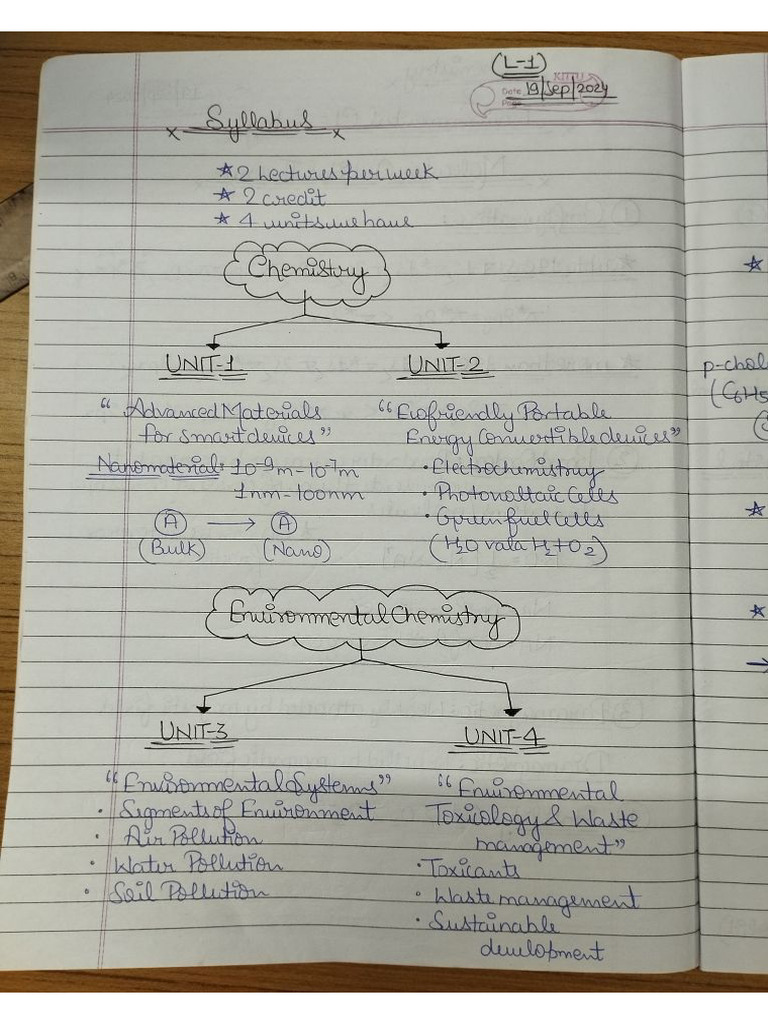 (L-1)
KITTU
Date 19/Sep/2024
Page
x Syllabus x
★ 2 Lectures per week
★ 2 credit
★ 4 units we have
Chemistry
UNIT-1 UNIT-2
“Advanced Materials
for smart devices”
Nanomaterial: 10⁻⁹m - 10⁻⁷m
1nm - 100nm
A → A
(Bulk) (Nano)
“Ecofriendly Portable
Energy Convertible devices”
• Electrochemistry
• Photovoltaic Cells
• Green fuel cells
(H₂O vala H₂+O₂)
Environmental Chemistry
UNIT-3 UNIT-4
“Environmental Systems”
• Sigments of Environment
• Air Pollution
• Water Pollution
• Soil Pollution
“Environmental
Toxicology & Waste
management”
• Toxicants
• Waste management
• Sustainable
development
★
p-chol
(C6H5
★
★
→